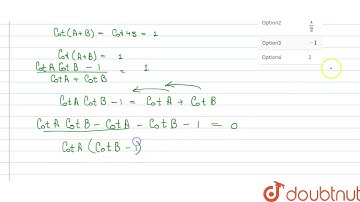 Cot(A+B) = Cot 45 = 1
Cot(A+B) = 1
Cot A Cot B - 1 / Cot A + Cot B = 1
Cot A Cot B - 1 = Cot A + Cot B
Cot A Cot B - Cot A - Cot B - 1 = 0
Cot A (Cot B - 1)
Option2 1/2
Option3 -1
Option4 2
doubtnut